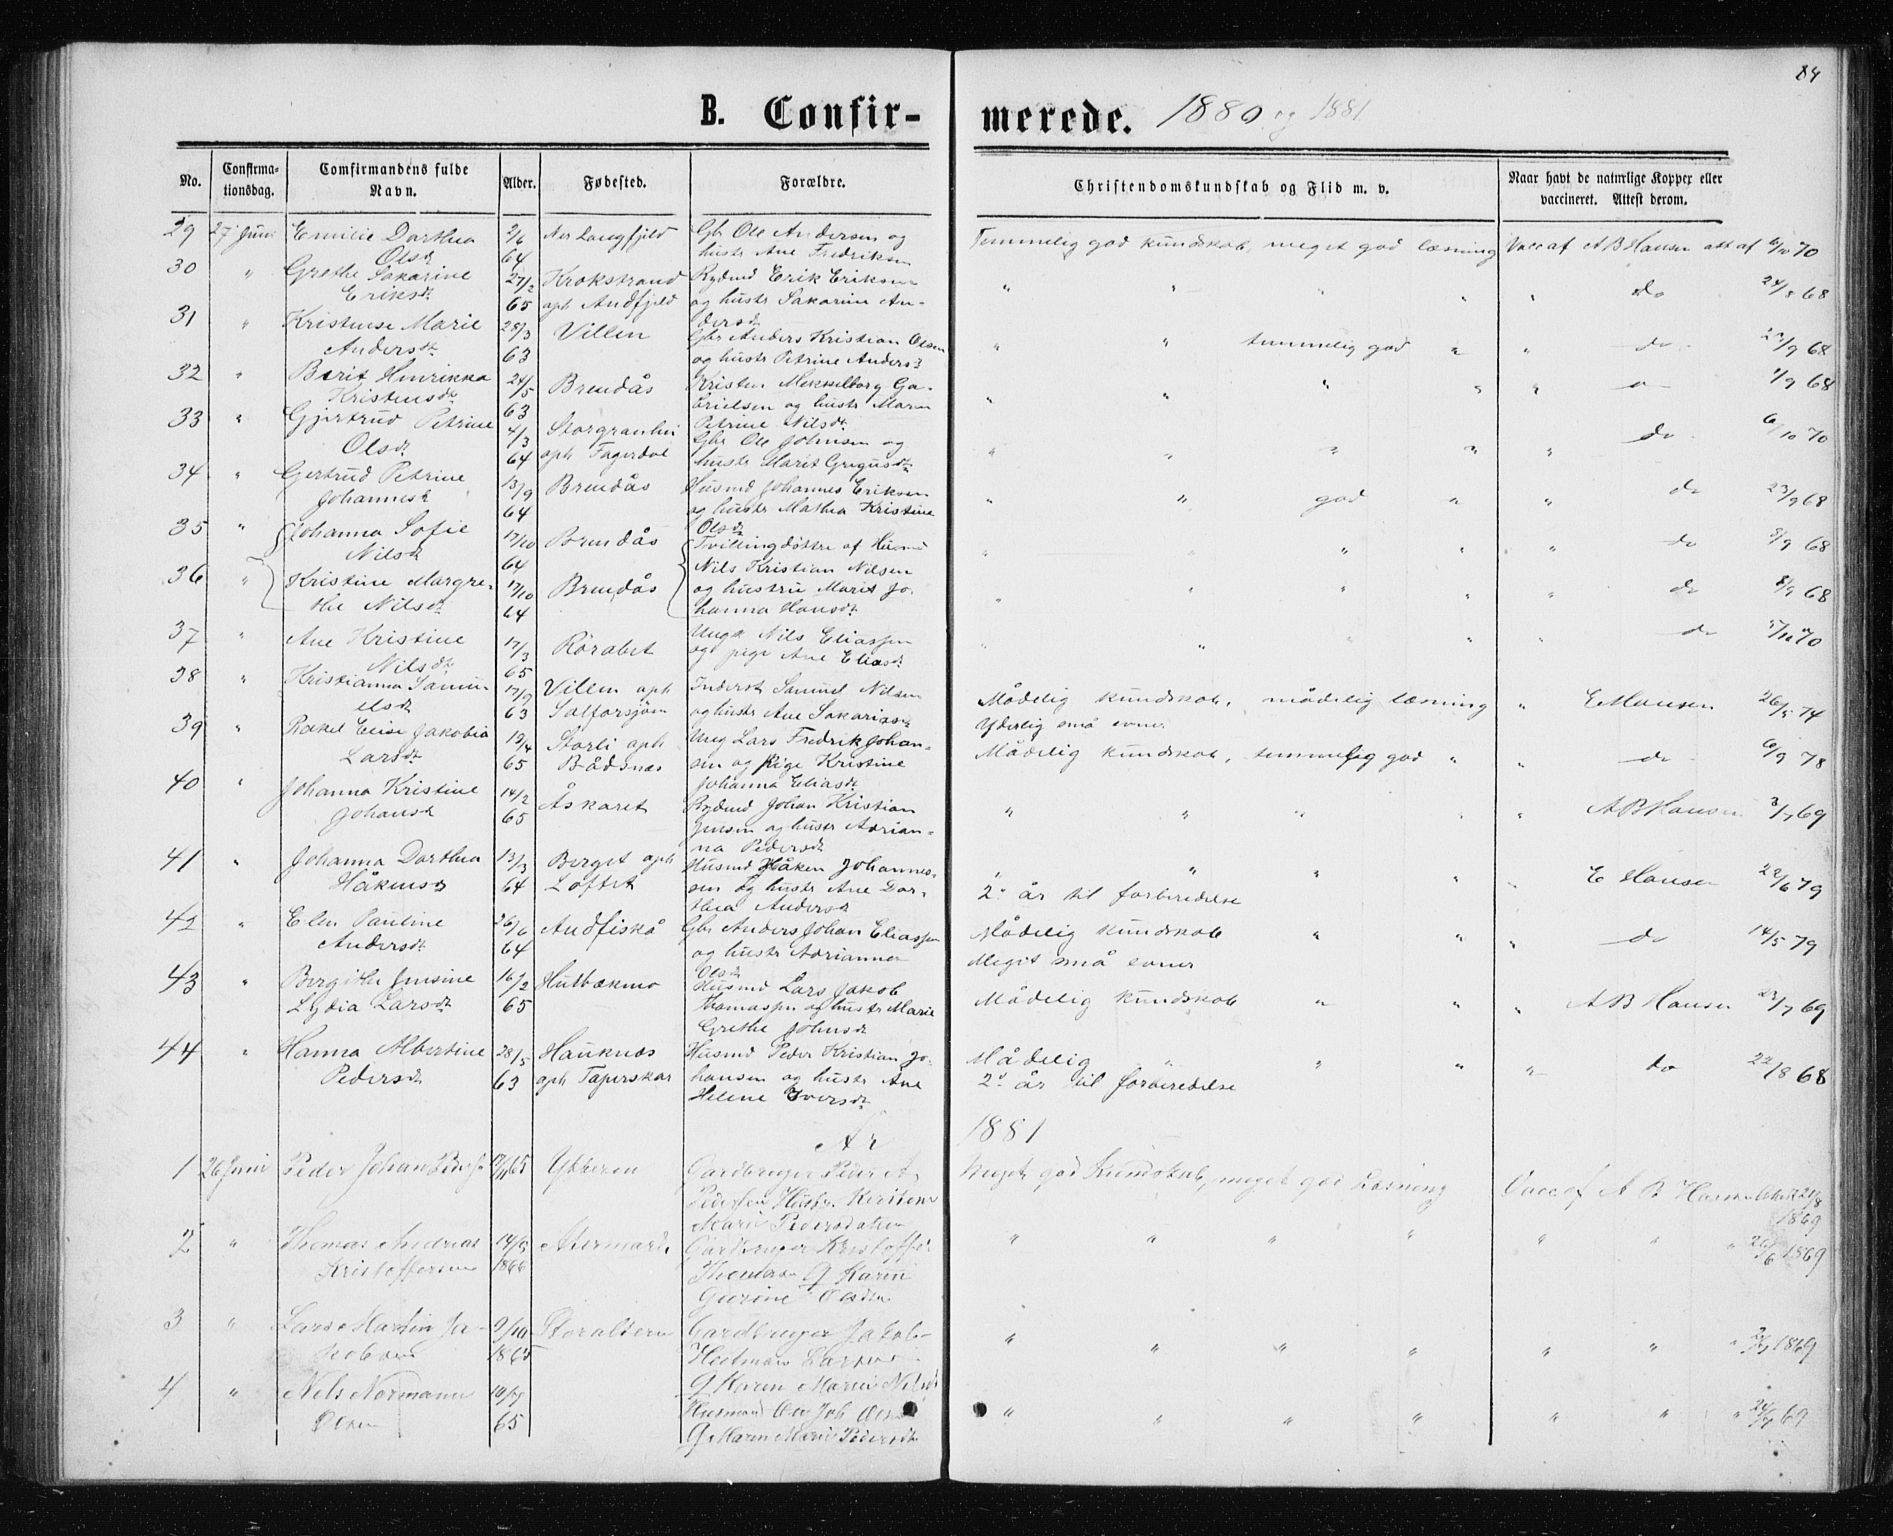 84
B. Confirmerede. 1880 og 1881
No. Confirmationsdag. Comfirmandens fulde Navn. Alder. Fødested. Forældre. Christendomskundskab og Flid m. v. Naar havt de naturlige Kopper eller vaccineret. Attest derom.
29 27 Juni Emilie Dorthea Olsdt 2/6 64 Langfjeld Gbr Ole Andersen og hustr Ane Fredriksen Temmelig god kundskab, meget god læsning Vacc af A B Hansen att af 6/10 70
30 " Grethe Sakarine Eriksdt 27/2 65 Krokstrand oph Andfjeld Rydmd Erik Eriksen og hustr Sakarine Andersdt " " " " " do 24/8 68
31 " Kristense Marie Andersdt 28/3 63 Villen Gbr Anders Kristian Olsen og hustr Petrine Andersdt " " temmelig god " " do 23/9 68
32 " Berit Henrikka Kristensdt 24/5 63 Brendås Kristen Mekkelborg Gabrielsen og hustr Maren Petrine Nilsdt " " " " " 1/9 68
33 " Gjertrud Petrine Olsdt 4/3 64 oph Fagerdal Gbr Ole Johnsen og hustr Marit Gregusdt " " " " " do 6/10 70
34 " Gertrud Petrine Johannesdt 13/9 64 Brendås Husmd Johannes Eriksen og hustr Mathea Kristine Olsdt " " god " " do 23/9 68
35 " Johanna Sofie Nilsdt 17/10 64 Brendås Tvillingdøttre af Husmd " " " " do 8/9 68
36 " Kristine Margrethe Nilsdt 17/10 64 Brendås Nils Kristian Nilsen og hustru Marit Johanna Hansdt " " " " " do 8/9 68
37 " Ane Kristine Nilsdt 17/3 65 Rørabet Ungk Nils Eliassen og pige Ane Eliasdt " " " " " do 70
38 " Kristianna Samuelsdt 17/9 63 Villen oph Inderst Samuel Nilsen og hustr Ane Sakariasdt Mådelig kundskab, mådelig læsning Yderlig små evner " E Hansen 26/5 74
39 " Rakel Elise Jakobia Larsdt 12/4 65 Storli oph Bådsnes Ung Lars Fredrik Johansen og Pige Kristine Johanna Eliasdt Mådelig kundskab, temmelig god " " do 6/9 78
40 " Johanna Kristine Johansdt 14/2 65 Åskaret Rydmd Johan Kristian Jensen og hustr Adrianna Pedersdt " " " " " A B Hansen 3/7 69
41 " Johanna Dorthea Håkensdt 13/3 64 Berget oph Loftet Husmd Håken Johannessen og hustr Ane Dorthea Andersdt " " " " 2 år til forberedelse " E Hansen 22/6 79
42 " Elen Pauline Andersdt 26/6 64 Andfiskå Gbr Anders Johan Eliassen og hustr Adrianna Olsdt Mådelig kundskab " " Meget små evner " do 14/5 79
43 " Bergithe Jensine Lydia Larsdt 16/2 65 Hulbækmo Husmd Lars Jakob Thomassen og hustr Marie Grethe Johnsdt Mådelig kundskab " " " A B Hansen 23/7 69
44 " Hanna Albertine Pedersdt 28/5 63 Hauknæs oph Taperskar Husmd Peder Kristian Johansen og hustr Ane Helene Iversdt Mådelig " " " 2 år til forberedelse " do 22/8 68
År 1881
1 26 Juni Peder Johan 65 Ytteren Gardbruger Peder A. Pedersen Hustr. Marie Pedersdatter Meget god Kundskab, meget god Læsning Vacc af A B Hansen 21/8 1869
2 " Thomas Andreas Kristoffersen 14/5 1866 Gardbruger Kristoffer " " " " " " " 26/6 1869
3 " Lars Martin Jakobsen 9/10 1865 Storalteren Gardbruger Jakob Larsen " " " " " " " 1869
4 " Nils Normann Olsen 10/7 65 G Karen Marie Nilsdt Husmand Ole Job Olsen G Maren Marie Pedersdt " " " " " " " 24/7 69